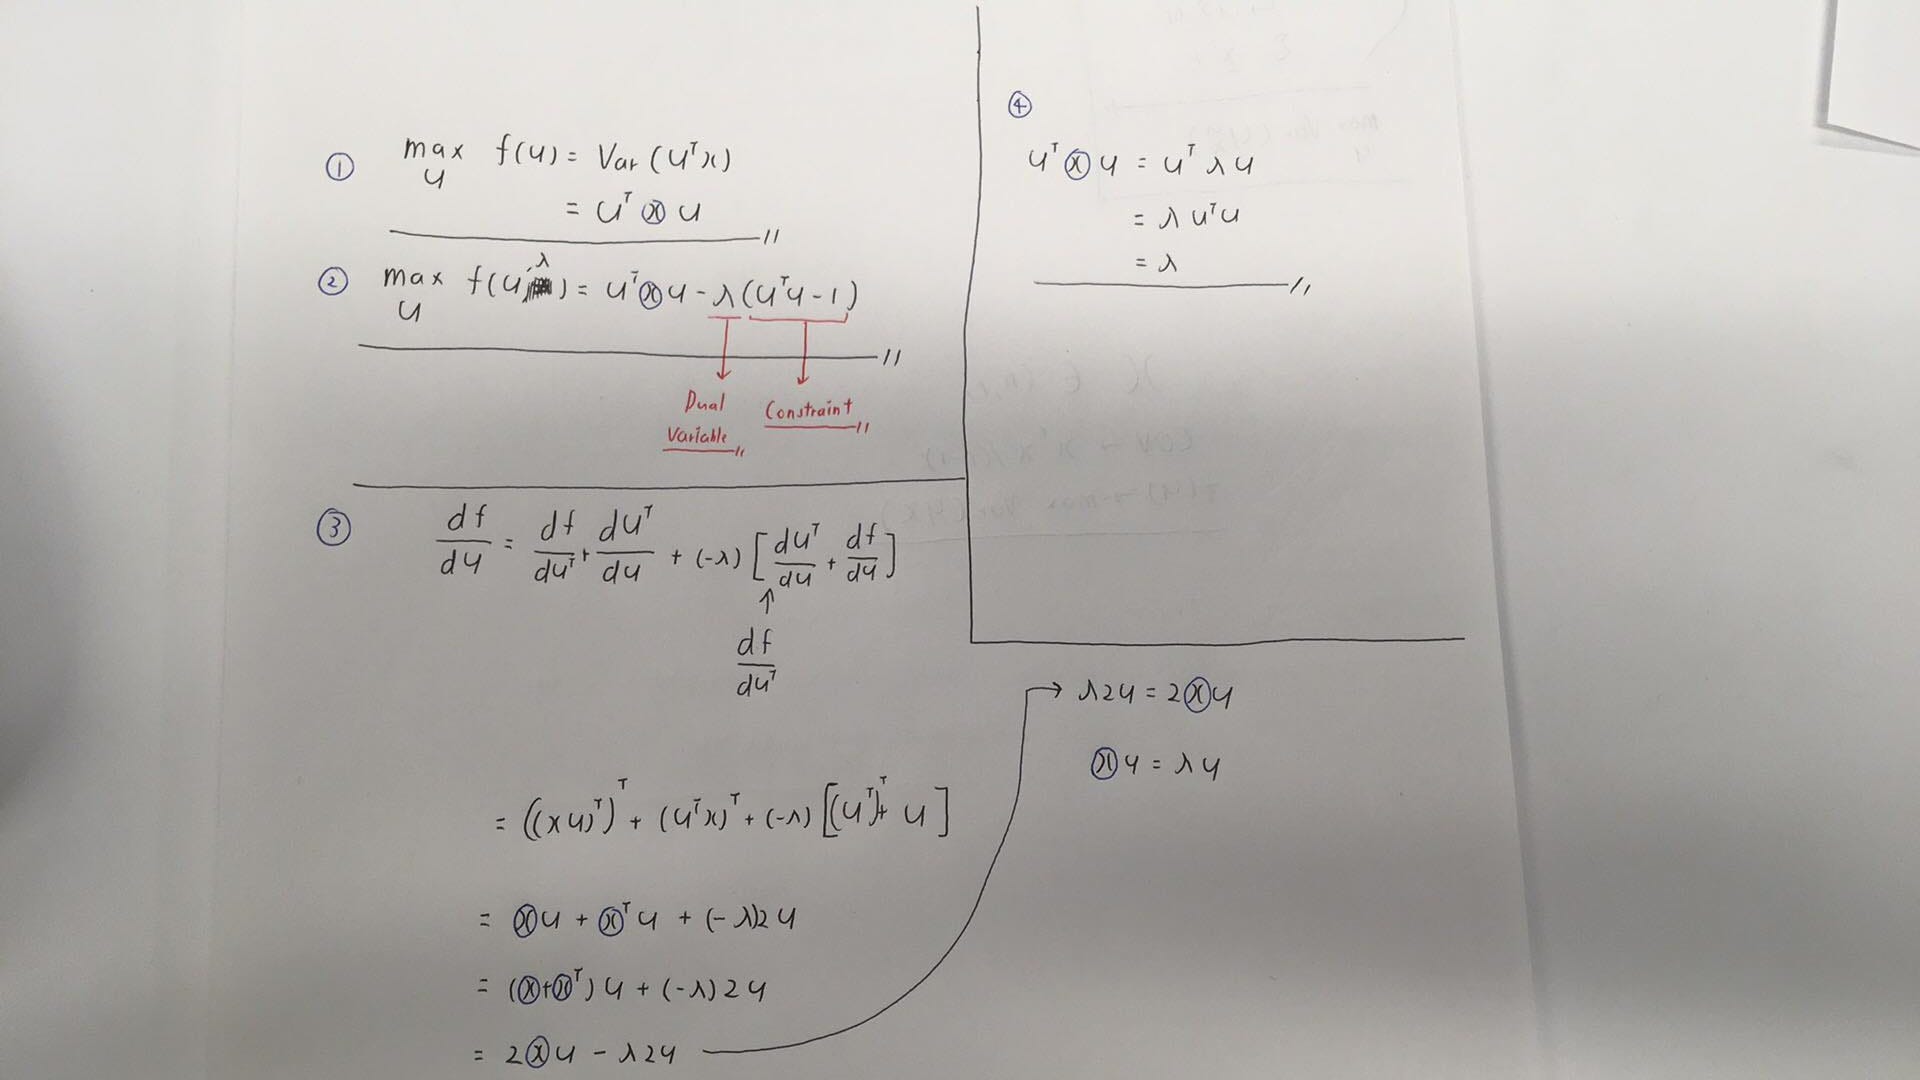 ① max f(u) = Var(uᵀx)
u
= uᵀⓧu
② max f(u,λ) = uᵀⓧu - λ(uᵀu - 1)
u
Dual Constraint
Variable
③ df/du = df/duᵀ + duᵀ/du + (-λ)[duᵀ/du + df/du]
↑
df/duᵀ
= ((xu)ᵀ)ᵀ + (uᵀx)ᵀ + (-λ)[(uᵀ)ᵀ + u]
= ⓧu + ⓧᵀu + (-λ)2u
= (ⓧ+ⓧᵀ)u + (-λ)2u
= 2ⓧu - λ2u
→ λ2u = 2ⓧu
ⓧu = λu
④
uᵀⓧu = uᵀλu
= λuᵀu
= λ